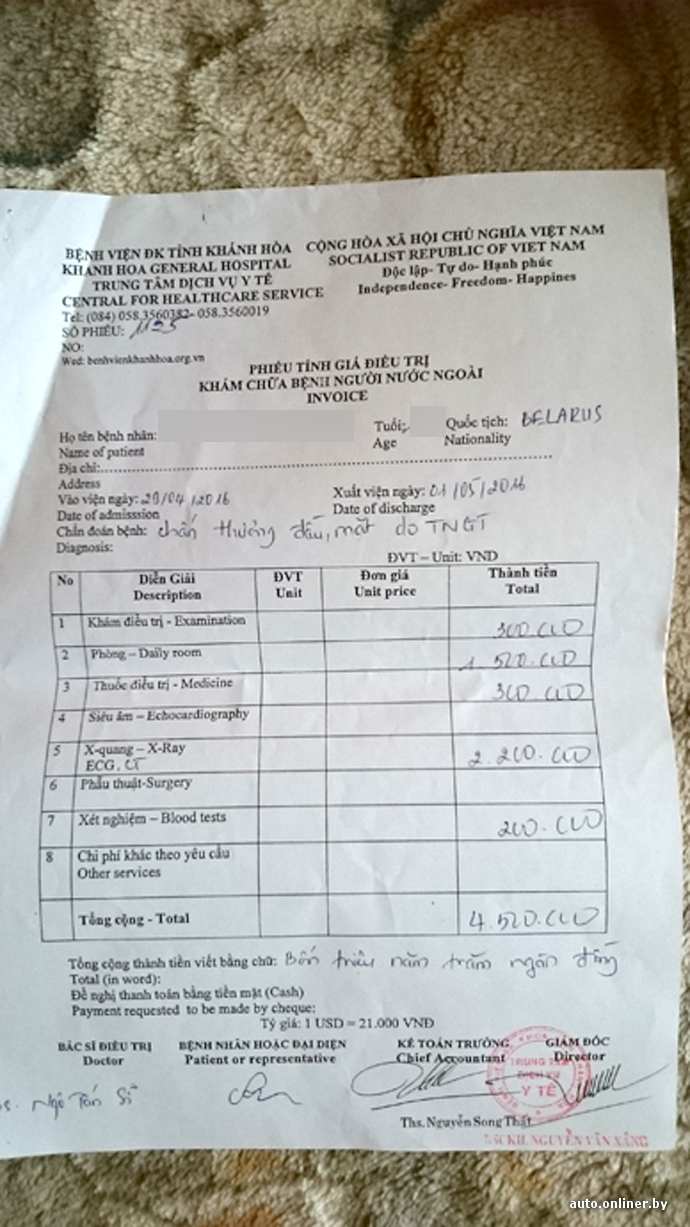 BỆNH VIỆN ĐK TỈNH KHÁNH HÒA
KHANH HOA GENERAL HOSPITAL
TRUNG TÂM DỊCH VỤ Y TẾ
CENTRAL FOR HEALTHCARE SERVICE
Tel: (084) 058.3560382- 058.3560019
SỐ PHIẾU: 1125
NO:
Wed: benhvienkhanhhoa.org.vn
CỘNG HÒA XÃ HỘI CHỦ NGHĨA VIỆT NAM
SOCIALIST REPUBLIC OF VIET NAM
Độc lập- Tự do- Hạnh phúc
Independence- Freedom- Happines
PHIẾU TÍNH GIÁ ĐIỀU TRỊ
KHÁM CHỮA BỆNH NGƯỜI NƯỚC NGOÀI
INVOICE
Họ tên bệnh nhân: Tuổi: Quốc tịch: BELARUS
Name of patient Age Nationality
Địa chỉ:
Address
Vào viện ngày: 29/04/2016 Xuất viện ngày: 01/05/2016
Date of admisssion Date of discharge
Chẩn đoán bệnh: chấn thương đầu, mắt do TNGT
Diagnosis:
ĐVT – Unit: VND
No Diễn Giải ĐVT Đơn giá Thành tiền
Description Unit Unit price Total
1 Khám điều trị - Examination 300.000
2 Phòng – Daily room 1.520.000
3 Thuốc điều trị - Medicine 300.000
4 Siêu âm – Echocardiography
5 X-quang – X-Ray 2.200.000
ECG, CT
6 Phẫu thuật-Surgery
7 Xét nghiệm – Blood tests 200.000
8 Chi phí khác theo yêu cầu
Other services
Tổng cộng - Total 4.520.000
Tổng cộng thành tiền viết bằng chữ: Bốn triệu năm trăm ngàn đồng
Total (in word):
Đề nghị thanh toán bằng tiền mặt (Cash)
Payment requested to be made by cheque:
Tỷ giá: 1 USD = 21.000 VNĐ
BÁC SĨ ĐIỀU TRỊ BỆNH NHÂN HOẶC ĐẠI DIỆN KẾ TOÁN TRƯỞNG GIÁM ĐỐC
Doctor Patient or representative Chief Accountant Director
TRUNG TÂM
DỊCH VỤ
Y TẾ
Ngô Tấn Sĩ
Ths. Nguyễn Song Thất
NGUYỄN VĂN XÁNG
auto.onliner.by